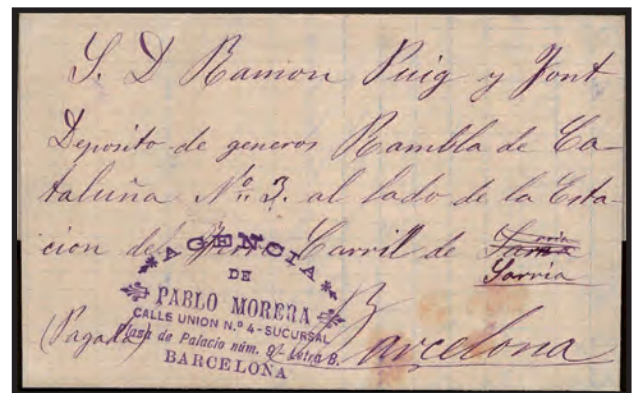 S. D Ramon Puig y Font
Deposito de generos Rambla de Ca-
taluña Nº 3. al lado de la Esta-
cion del Ferro Carril de Sarria
Sarria
(Pagado)
Barcelona
AGENCIA
DE
PABLO MORERA
CALLE UNION N.º 4-SUCURSAL
Plaza de Palacio núm. 9- Letra B.
BARCELONA